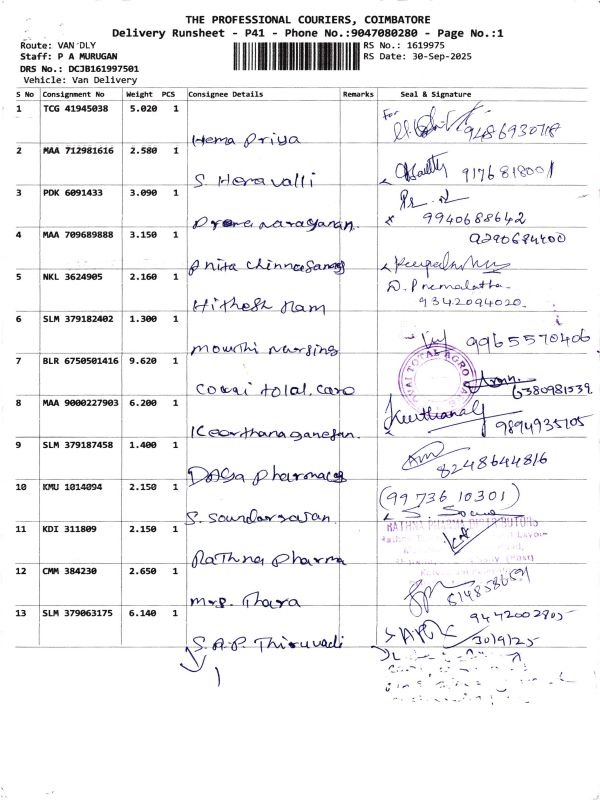 THE PROFESSIONAL COURIERS, COIMBATORE
Delivery Runsheet - P41 - Phone No.:9047080280 - Page No.:1
Route: VAN DLY
RS No.: 1619975
Staff: P A MURUGAN
RS Date: 30-Sep-2025
DRS No.: DCJB161997501
Vehicle: Van Delivery
S No Consignment No Weight PCS Consignee Details Remarks Seal & Signature
1 TCG 41945038 5.020 1
For
Hema Priya 9486930718
2 MAA 712981616 2.580 1
S. Hemavalli 9176818001
3 PDK 6091433 3.090 1
9940688642
4 MAA 709689888 3.150 1
Anita Chinnasamy
5 NKL 3624905 2.160 1
D. Premalatha
9342094020
Hithesh Ram
6 SLM 379182402 1.300 1
9965570406
mowthi nursing
7 BLR 6750501416 9.620 1
TOTAL AGRO
6380981539
covai total care
8 MAA 9000227903 6.200 1
Keerthana G
9894935705
Keerthana ganesan.
9 SLM 379187458 1.400 1
8248644816
Daya pharmacy
10 KMU 1014094 2.150 1
(99736 10301)
S. Soundarrasan.
11 KDI 311809 2.150 1
RATHNA PHARMA DISTRIBUTORS
Rathna pharma
12 CMM 384230 2.650 1
mrs. Thara
13 SLM 379063175 6.140 1
9442002805
30/9/25
S.A.P. Thiruvadi